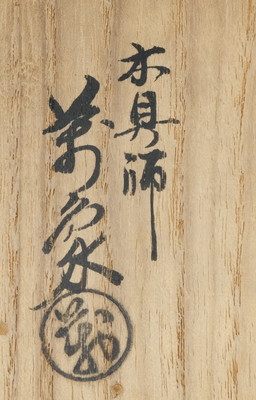 木具師
萬象